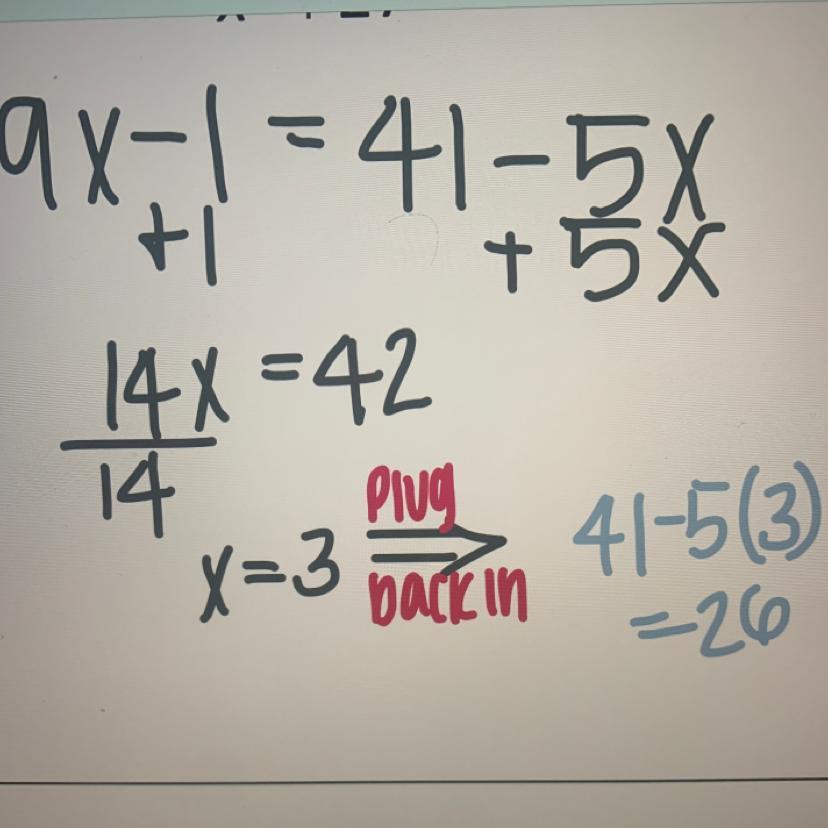 9x-1 = 41-5x
+1 +5x
14x = 42
14
x=3 plug back in 41-5(3)
=26